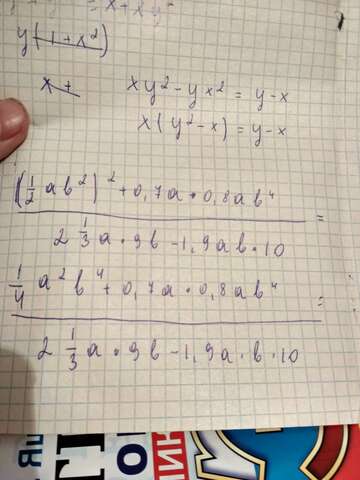 = x + xy
y(1+x²)
x +
xy² - yx² = y-x
x(y²-x) = y-x
(1/2 ab²)² + 0,7a · 0,8ab⁴ =
2 1/3 a · 9b - 1,9ab · 10
1/4 a²b⁴ + 0,7a · 0,8ab⁴ =
2 1/3 a · 9b - 1,9a · b · 10